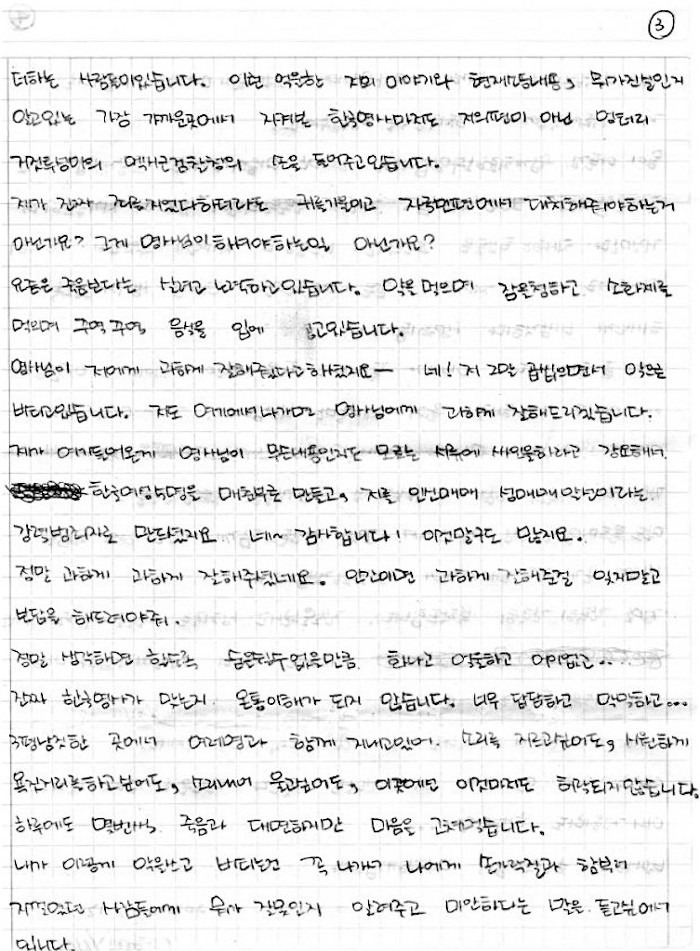 ③
더하는 사람들이있습니다. 이런 억울한 저의 이야기와 현재 내용, 뭐가진실인지
알고있는 가장 가까운곳에서 지켜본 한국영사마저도 저의편이 아닌 엉터리
거짓투성이의 멕시코검찰청의 손을 들어주고있습니다.
제가 진짜 죄를지었다하더라도 귀를기울이고 자국민편에서 대처해줘야하는거
아닌가요? 그게 영사님이 하셔야하는일 아닌가요?
요즘은 죽음보다는 살려고 노력하고있습니다. 약을먹으며 잠을청하고 소화제를
먹으며 꾸역꾸역 음식을 입에 넣고있습니다.
영사님이 저에게 과하게 잘해주었다고하셨지요— 네! 저 그말 곱씹으면서 악으로
버티고있습니다. 저도 여기에서나가면 영사님에게 과하게 잘해드리겠습니다.
제가 여기들어온게 영사님이 무슨내용인지도 모르는 서류에 싸인을하라고 강요해서
한국여성 명을 매춘부로 만들고, 저를 인신매매 성매매 악년이라는
강력범죄자로 만드셨지요 네~ 감사합니다! 이것말구도 많지요.
정말 과하게 과하게 잘해주셨네요. 인간이면 과하게 잘해준걸 잊지말고
보답을 해드려야죠.
정말 생각하면 할수록 숨을쉴수없을만큼 화나고 억울하고 어이없고...
진짜 한국영사가 맞는지 온통이해가 되지 않습니다. 너무 답답하고 막막하고...
3평남짓한 곳에서 여러명과 함께 지내고있어 소리를 지르고싶어도, 시원하게
욕짓거리를하고싶어도, 소리내어 울고싶어도, 이곳에선 이것마저도 허락되지않습니다.
하루에도 몇번씩 죽음과 대면하지만 마음을 고쳐먹습니다.
내가 이렇게 악을쓰고 버티는건 꼭 나가서 나에게 손가락질과 함부로
사람들에게 뭐가 잘못인지 알려주고 미안하다는 말을 듣고싶어서
입니다.